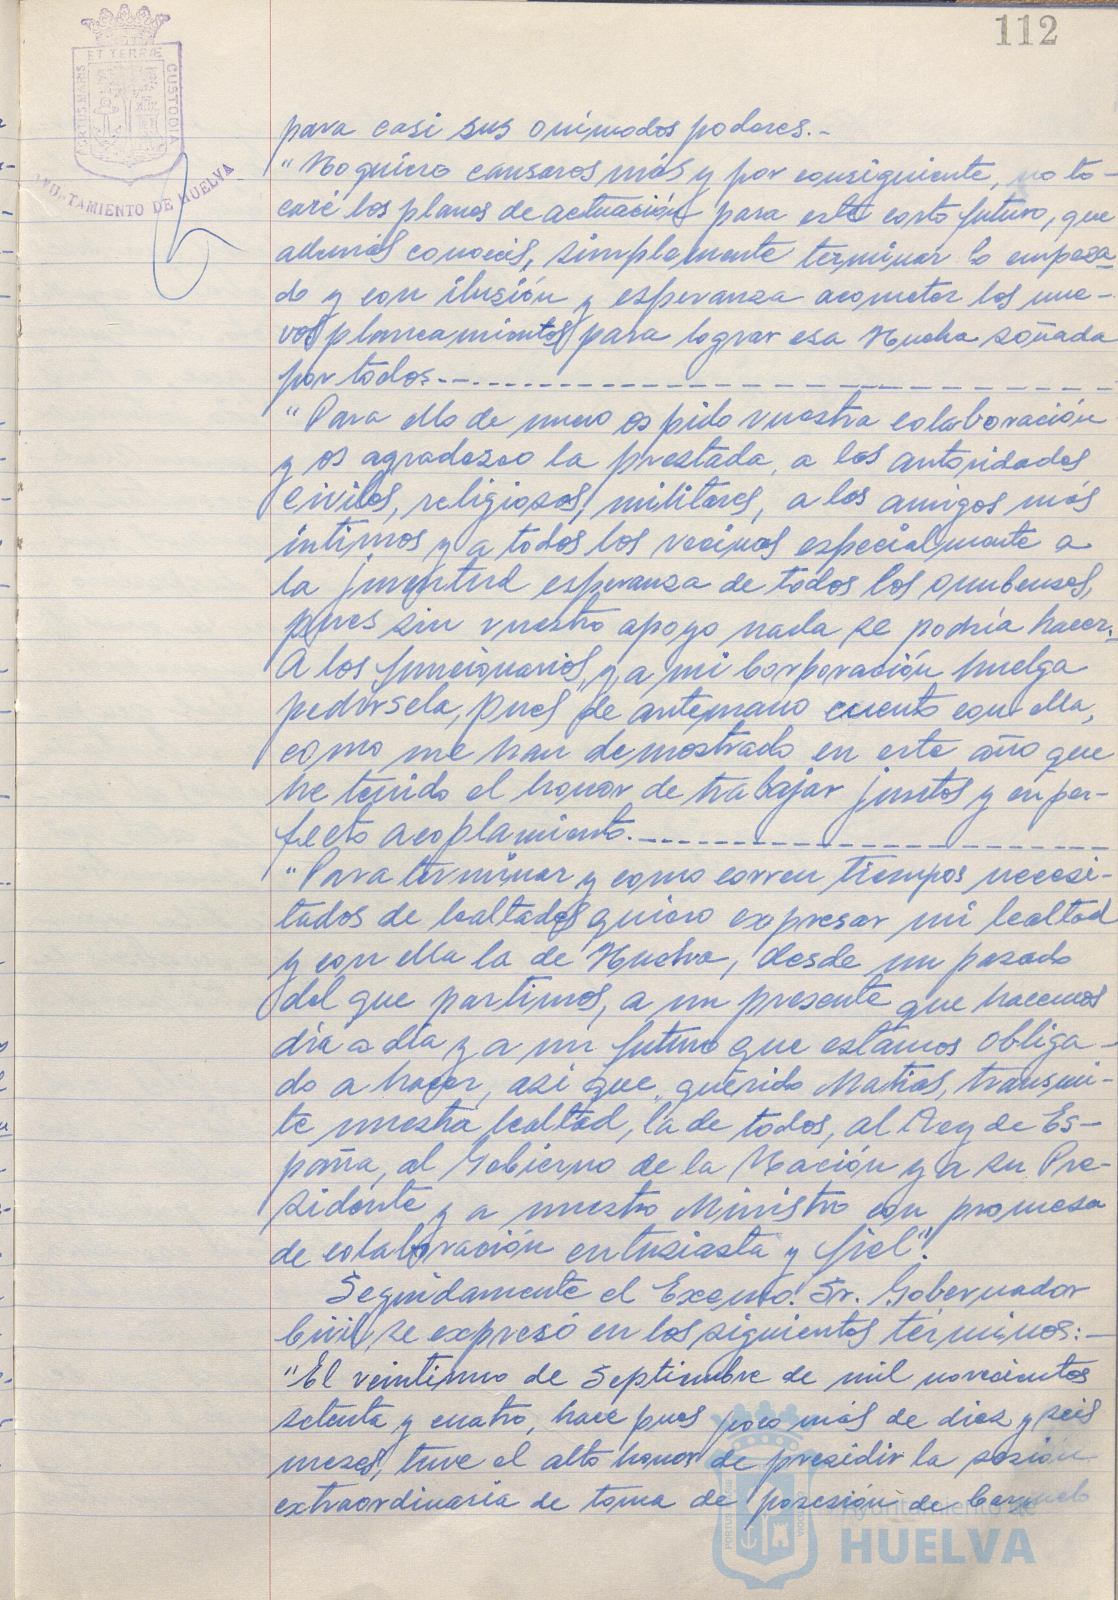 112
PORTUS MARIS ET TERRÆ CUSTODIA
AYUNTAMIENTO DE HUELVA
para casi sus onimodos poderes.-
"No quiero cansaros más y por consiguiente, no to-
caré los planes de actuación para este corto futuro, que
además conoceis, simplemente terminar lo empeza-
do y con ilusión y esperanza acometer los nue-
vos planeamientos para lograr esa Huelva soñada
por todos.-
"Para ello de nuevo os pido vuestra colaboración
y os agradezco la prestada, a las autoridades
civiles, religiosas, militares, a los amigos más
íntimos y a todos los vecinos especialmente a
la juventud esperanza de todos los onubenses,
pues sin vuestro apoyo nada se podría hacer.-
A los funcionarios, y a mi Corporación huelga
pedírsela, pues de antemano cuento con ella,
como me han demostrado en este año que
he tenido el honor de trabajar juntos y en per-
fecto acoplamiento.-
"Para terminar y como corren tiempos necesi-
tados de lealtades quiero expresar mi lealtad
y con ella la de Huelva, desde un pasado
del que partimos, a un presente que hacemos
día a día y a un futuro que estamos obliga-
do a hacer, así que, querido Matías, transmi-
te nuestra lealtad, la de todos, al Rey de Es-
paña, al Gobierno de la Nación y a su Pre-
sidente y a nuestro Ministro con promesa
de colaboración entusiasta y fiel".
Seguidamente el Excmo. Sr. Gobernador
Civil se expresó en los siguientes términos:-
"El veintiuno de Septiembre de mil novecientos
setenta y cuatro, hace pues poco más de diez y seis
meses, tuve el alto honor de presidir la sesión
extraordinaria de toma de posesión de Carmelo
Ayuntamiento de
HUELVA